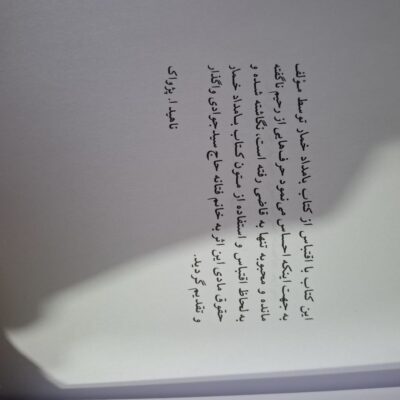 این کتاب با اقتباس از کتاب بامداد خمار توسط مؤلف
به جهت اینکه احساس می‌نمود حرف‌هایی از رحیم ناگفته
مانده و محبوبه تنها به قاضی رفته است، نگاشته شده و
به لحاظ اقتباس و استفاده از متون کتاب بامداد خمار
حقوق مادی این اثر به خانم فتانه حاج سیدجوادی واگذار
و تقدیم گردید.
ناهید ا. پژواک